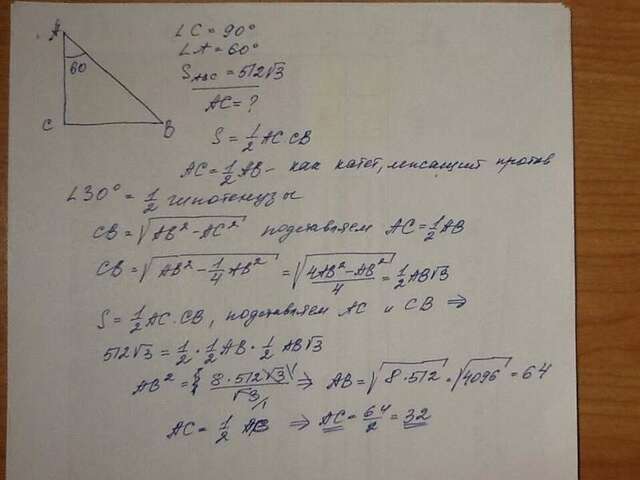 A
60
C
B
∠C = 90°
∠A = 60°
S ABC = 512√3
AC = ?
S = 1/2 AC·CB
AC = 1/2 AB – как катет, лежащий против
∠30° = 1/2 гипотенузы
CB = √(AB² - AC²) подставляем AC = 1/2 AB
CB = √(AB² - 1/4 AB²) = √((4AB² - AB²)/4) = 1/2 AB√3
S = 1/2 AC·CB, подставляем AC и CB ⇒
512√3 = 1/2 · 1/2 AB · 1/2 AB√3
AB² = (8·512√3)/√3 ⇒ AB = √(8·512) = √4096 = 64
AC = 1/2 AB ⇒ AC = 64/2 = 32